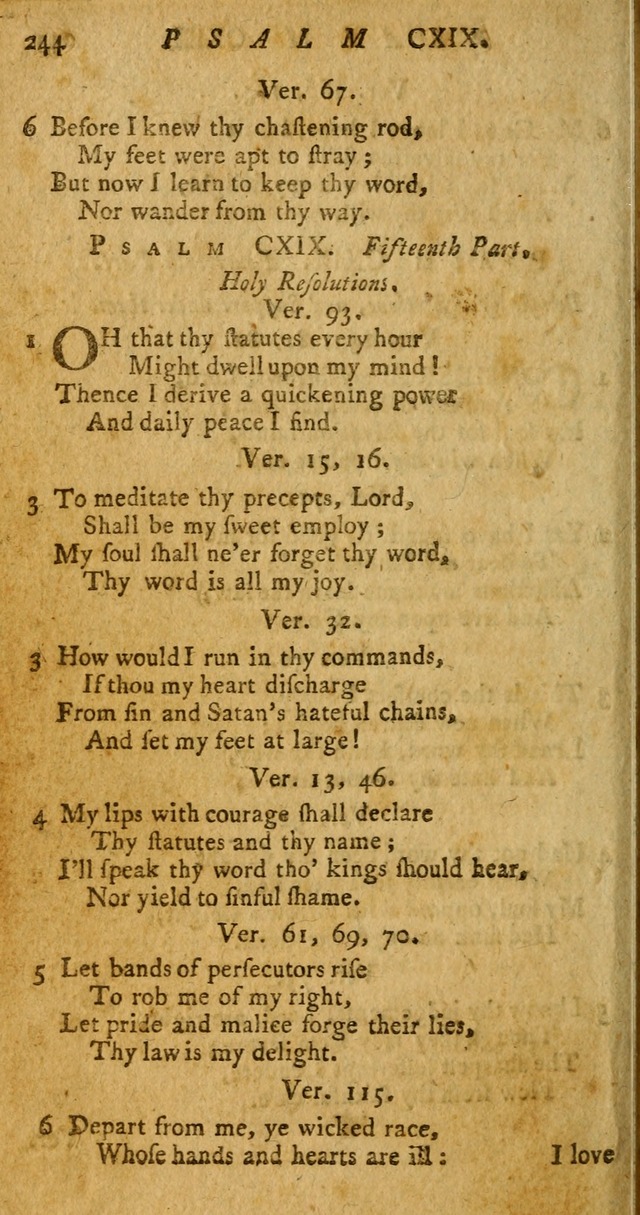 244 PSALM CXIX.
Ver. 67.
6 Before I knew thy chaſtening rod,
My feet were apt to ſtray;
But now I learn to keep thy word,
Nor wander from thy way.
PSALM CXIX. Fifteenth Part.
Holy Reſolutions.
Ver. 93.
1 OH that thy ſtatutes every hour
Might dwell upon my mind!
Thence I derive a quickening power
And daily peace I find.
Ver. 15, 16.
3 To meditate thy precepts, Lord,
Shall be my ſweet employ;
My ſoul ſhall ne'er forget thy word,
Thy word is all my joy.
Ver. 32.
3 How would I run in thy commands,
If thou my heart diſcharge
From ſin and Satan's hateful chains,
And ſet my feet at large!
Ver. 13, 46.
4 My lips with courage ſhall declare
Thy ſtatutes and thy name;
I'll ſpeak thy word tho' kings ſhould hear,
Nor yield to ſinful ſhame.
Ver. 61, 69, 70.
5 Let bands of perſecutors riſe
To rob me of my right,
Let pride and malice forge their lies,
Thy law is my delight.
Ver. 115.
6 Depart from me, ye wicked race,
Whoſe hands and hearts are ill:
I love